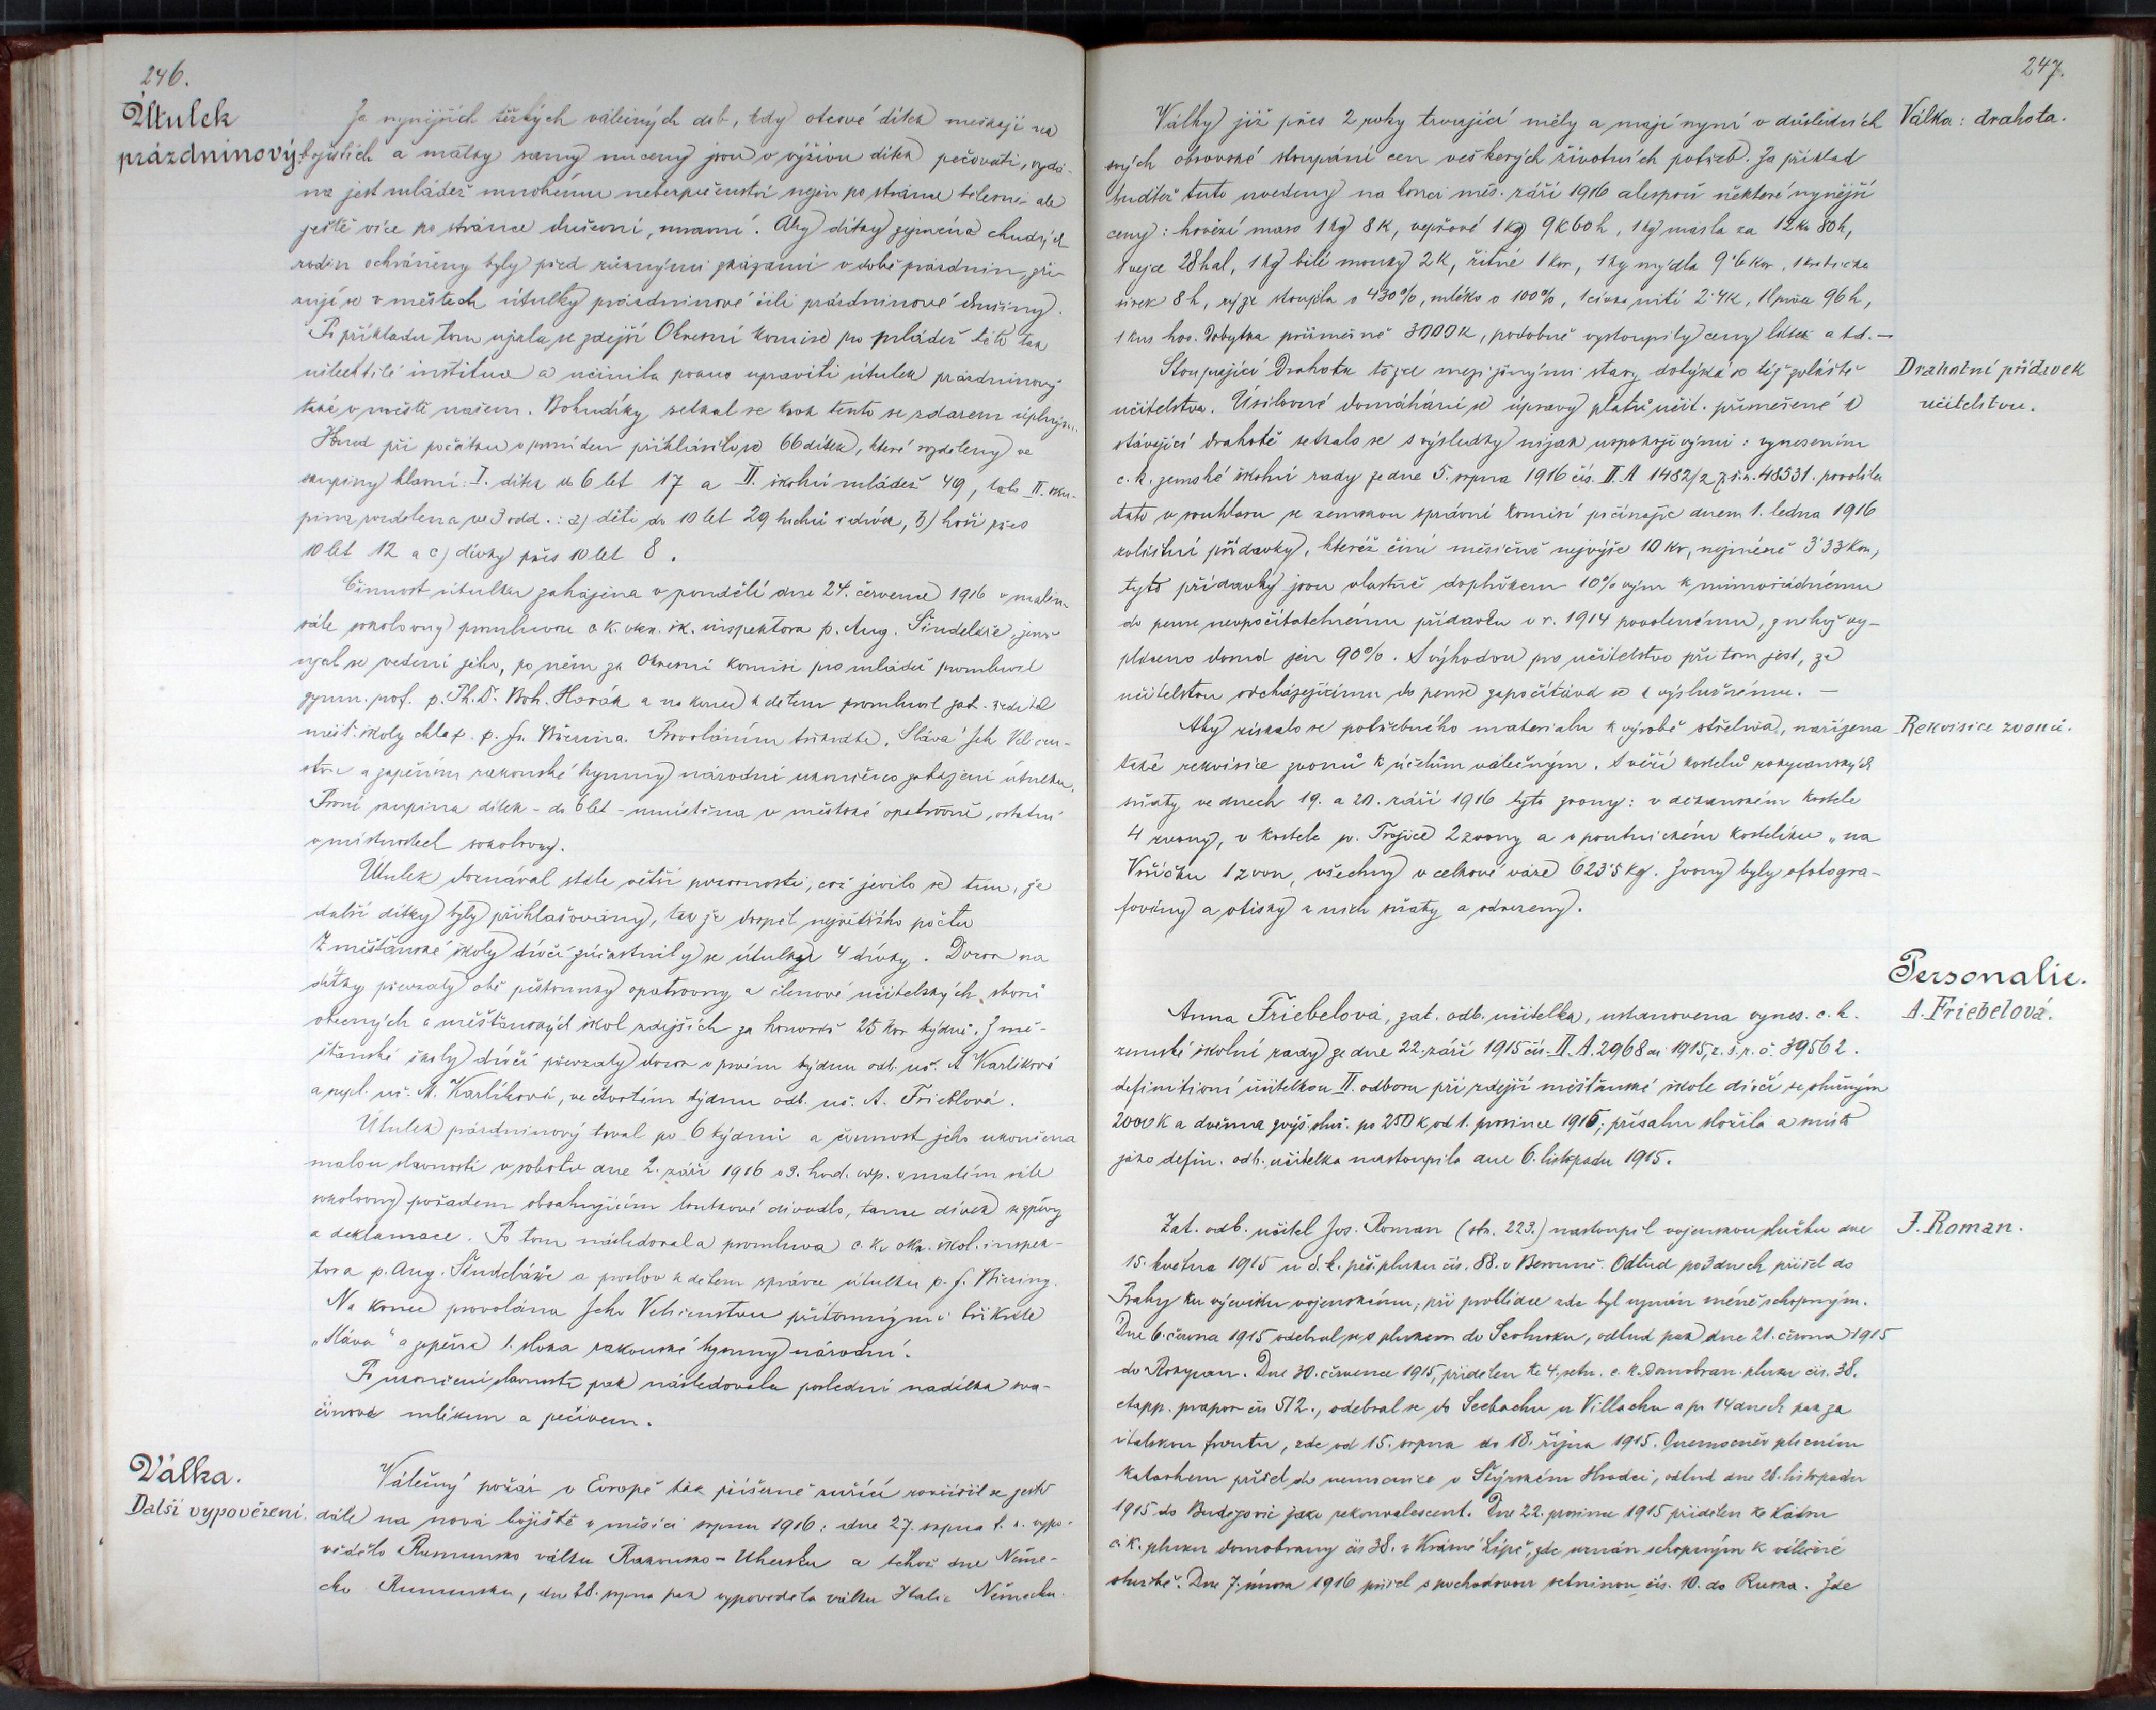 246.
Útulek
prázdninový.
Za nynějších těžkých válečných dob, kdy otcové dítek meškají na
bojištích a matky samy nuceny jsou o výživu dítek pečovati, vydá-
na jest mládež mnohému nebezpečenství nejen po stránce tělesné ale
ještě více po stránce duševní, mravní. Aby dítky zejména chudých
rodin ochráněny byly před různými zkázami v době prázdnin, zři-
zují se v městech útulky prázdninové čili prázdninové družiny.
Po příkladu tom ujala se zdejší Okresní komise pro mládež této tak
ušlechtilé instituce a učinila pokus upraviti útulek prázdninový
také v městě našem. Bohudíky setkal se krok tento se zdarem úplným.
Hned při počátku v pondělí přihlásilo se 66 dítek, které rozděleny ve
skupiny hlavní: I. dítka do 6 let 17 a II. školní mládež 49, tato II. sku-
pina rozdělena ve 3 odd.: a) děti do 10 let 29 hochů i dívek, b) hoši přes
10 let 12 a c) dívky přes 10 let 8.
Činnost útulku zahájena v pondělí dne 24. července 1916 v malém
sále sokolovny promluvou c. k. okr. šk. inspektora p. Aug. Šindeláře, jenž
ujal se vedení jeho, po něm za Okresní komisi pro mládež promluvil
gymn. prof. p. Ph. Dr. Boh. Horák a na konec k dětem promluvil zat. ředitel
měšť. školy chlap. p. Fr. Biering. Provoláním trikráte „Sláva“ Jeh. Veličen-
stvu a zapěním rakouské hymny národní ukončeno zahájení útulku.
První skupina dítek - do 6 let - umístěna v městské opatrovně, ostatní
v místnostech sokolovny.
Útulek doznával stále větší pozornosti, což jevilo se tím, že
další dítky byly přihlašovány, tak že dospěl největšího počtu
Z měšťanské školy dívčí zúčastnily se útulku 4 dívky. Dozor na
dítky převzaly obě pěstounky opatrovny a členové učitelských sborů
obecných a měšťanských škol zdejších za honorář 25 kor týdně. Z mě-
šťanské školy dívčí převzaly dozor v prvém týdnu odb. uč. A Karlíková
a zapl. uč. M. Karlíková, ve čtvrtém týdnu odb. uč. A. Frieblová.
Útulek prázdninový trval po 6 týdnů a činnost jeho ukončena
malou slavností v sobotu dne 2. září 1916 o 3. hod. odp. v malém sále
sokolovny pořadem obsahujícím loutkové divadlo, tance dívek se zpěvy
a deklamace. Po tom následovala promluva c. k. okr. škol. inspek-
tora p. Aug. Šindeláře a proslov k dětem správce útulku p. F. Biering.
Na konec provoláno Jeho Veličenstvu přítomnými třikráte
„Sláva“ a zapěna 1. sloka rakouské hymny národní.
Po ukončení slavnosti pak následovala poslední nadílka sva-
činová mlékem a pečivem.
Válka.
Další vypovězení.
Válečný požár v Evropě tak příšerně zuřící rozšířil se ještě
dále na nová bojiště v měsíci srpnu 1916: dne 27. srpna t. r. vypo-
vědělo Rumunsko válku Rakousko-Uhersku a téhož dne Něme-
cko Rumunsku, dne 28. srpna pak vypověděla válku Italie Německu.
247.
Válka: drahota.
Války již přes 2 roky trvající měly a mají nyní v důsledcích
svých obrovské stoupání cen veškerých životních potřeb. Za příklad
budtež tuto uvedeny na konci měs. září 1916 alespoň některé nynější
ceny: hovězí maso 1 kg 8 K, vepřové 1 kg 9 K 60 h, 1 kg másla za 12 Kr 80 h,
1 vejce 28 hal, 1 kg bílé mouky 2 K, žitné 1 Kor, 1 kg mýdla 9·6 Kor, 1 krabička
sirek 8 h, rýže stoupla o 430%, mléko o 100%, 1 cívka nití 2·4 K, 1 l piva 96 h,
1 kus hov. dobytka průměrně 3000 K, podobně vystoupily ceny látek a td. —
Drahotní přídavek
učitelstvu.
Stoupající drahota tížíc mezi jinými stavy dotýká se též zvláště
učitelstva. Úsilovné domáhání se úpravy platů učit. přiměřené
stávající drahotě setkalo se s výsledky nijak uspokojivými: vynesením
c. k. zemské školní rady ze dne 5. srpna 1916 čís. II. A 1482/2 z. š. r. 48531. povolila
tato v souhlasu se zemskou správní komisí počínajíc dnem 1. ledna 1916
zvláštní přídavky, kteréž činí měsíčně nejvýše 10 Kr, nejméně 3·33 Kor,
tyto přídavky jsou vlastně doplňkem 10% ovým k mimořádnému
do pense nevpočítatelnému přídavku v r. 1914 povolenému, z něhož vy-
pláceno dosud jen 90%. S výhodou pro učitelstvo při tom jest, že
učitelstvu odcházejícímu do pense započítává se k výslužnému. —
Rekvisice zvonů.
Aby získalo se potřebného materialu k výrobě střeliva, nařízena
také rekvisice zvonů k účelům válečným. S věží kostelů rokycanských
sňaty ve dnech 19. a 20. září 1916 tyto zvony: v děkanském kostele
4 zvony, v kostele sv. Trojice 2 zvony a s poutnického kostelíku „na
Vršíčku 1 zvon, všechny v celkové váze 6235 kg. Zvony byly ofotogra-
fovány a otisky z nich sňaty a odvezeny.
Personalie.
A. Friebelová.
Anna Friebelová, zat. odb. učitelka, ustanovena vynes. c. k.
zemské školní rady ze dne 22. září 1915 čís. II. A. 2968 ai 1915, z. š. r. č. 39562.
definitivní učitelkou II. odboru při zdejší měšťanské škole dívčí se služným
2000 K a dvěma zvýš. služ. po 250 K od 1. prosince 1915; přísahu složila a místo
jako defin. odb. učitelka nastoupila dne 6. listopadu 1915.
J. Roman.
Zat. odb. učitel Jos. Roman (str. 223.) nastoupil vojenskou službu dne
15. května 1915 u c. k. pěš. pluku čís. 88. v Berouně. Odtud po 3 dnech přišel do
Prahy ku výcviku vojenskému; při prohlídce zde byl uznán méně schopným.
Dne 6. června 1915 odebral se s plukem do , odtud pak dne 21. června 1915
do Rokycan. Dne 30. července 1915, přidělen ke 4. setn. c. k. domobran. pluku čís. 38.
etapp. prapor čís 512., odebral se do Seebachu u Villachu a po 14 dnech pak za
italskou frontu, zde od 15. srpna do 18. října 1915. Onemocněv plicním
katarhem přišel do nemocnice v Štýrském Hradci, odtud dne 28. listopadu
1915 do Budějovic jako rekonvalescent. Dne 22. prosince 1915 přidělen ke kádru
c. k. pluku domobrany čís 38. v Krásné Lípě, zde uznán schopným k válečné
službě. Dne 7. února 1916 přišel s pochodovou setninou čís. 10. do Ruska. Zde